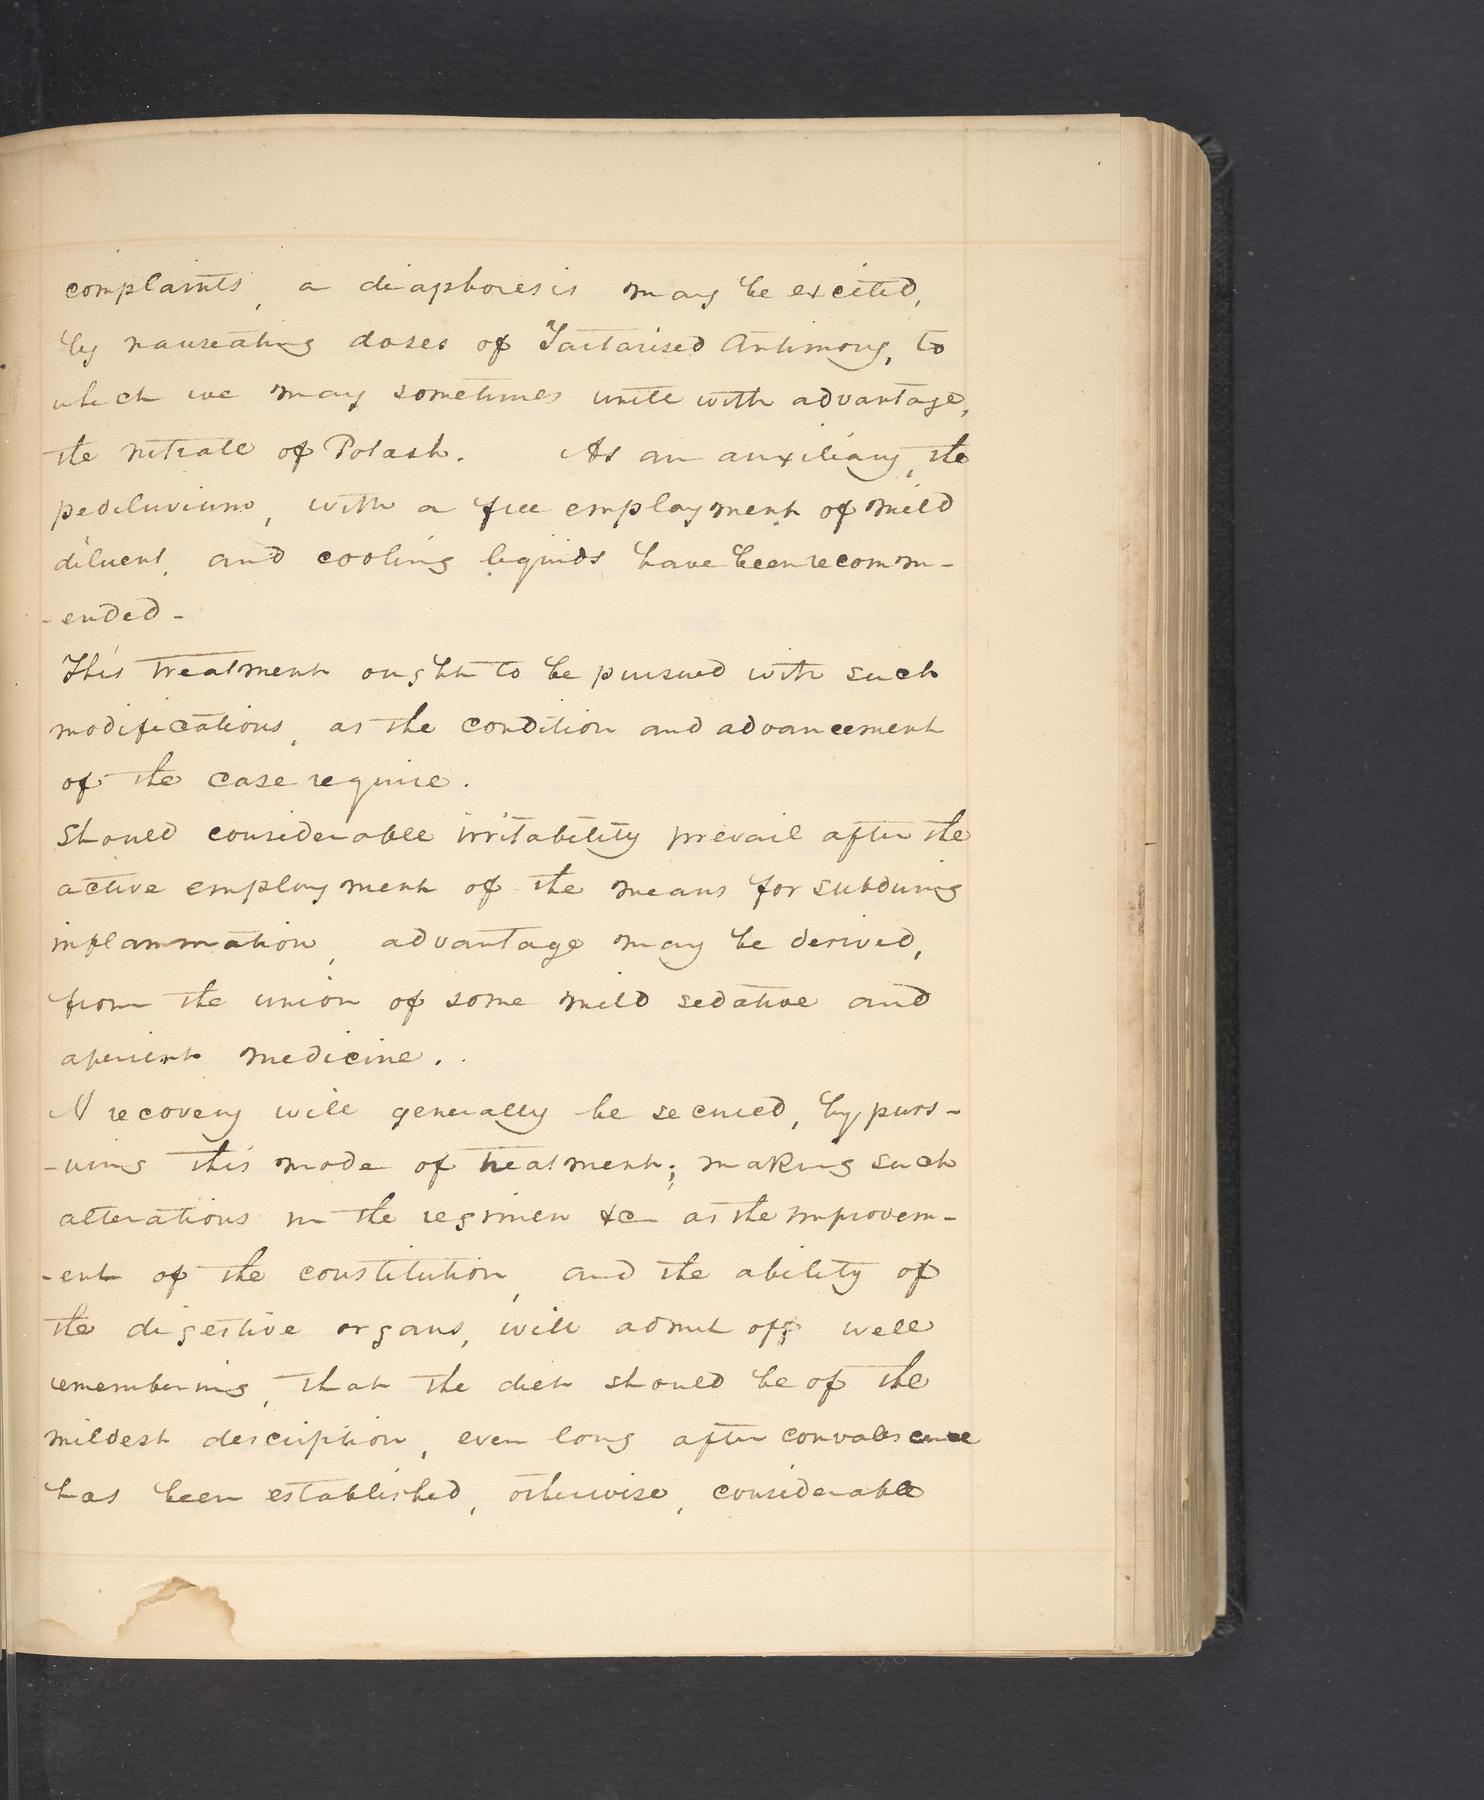 complaints, a diaphoresis may be excited,
by nauseating doses of Tartarised Antimony, to
which we may sometimes unite with advantage,
the nitrate of Potash. As an auxiliary, the
pediluvium, with a free employment of mild
diluent, and cooling liquids have been recomm-
-ended-
This treatment ought to be pursued with such
modifications, as the condition and advancement
of the case require.
Should considerable irritability prevail after the
active employment of the means for subduing
inflammation, advantage may be derived,
from the union of some mild sedative and
aperient medicine.
A recovery will generally be secured, by purs-
-uing this mode of treatment; making such
alterations in the regimen &c as the improvem-
-ent of the constitution, and the ability of
the digestive organs, will admit off; well
remembering, that the diet should be of the
mildest description, even long after convalescence
has been established, otherwise, considerable